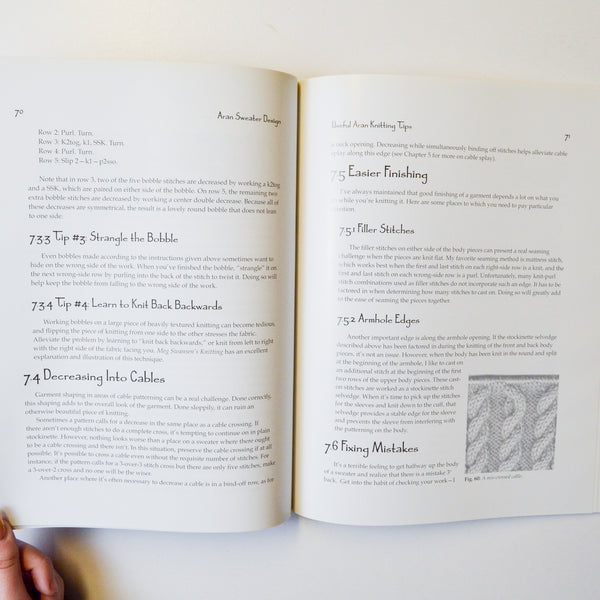 70
Aran Sweater Design
Row 2: Purl. Turn.
Row 3: K2tog, k1, SSK. Turn.
Row 4: Purl. Turn.
Row 5: Slip 2—k1—p2sso.
Note that in row 3, two of the five bobble stitches are decreased by working a k2tog
and a SSK, which are paired on either side of the bobble. On row 5, the remaining two
extra bobble stitches are decreased by working a center double decrease. Because all of
these decreases are symmetrical, the result is a lovely round bobble that does not lean
to one side.
7.3.3 Tip #3: Strangle the Bobble
Even bobbles made according to the instructions given above sometimes want to
hide on the wrong side of the work. When you've finished the bobble, "strangle" it on
the next wrong-side row by purling into the back of the stitch to twist it. Doing so will
help keep the bobble from falling to the wrong side of the work.
7.3.4 Tip #4: Learn to Knit Back Backwards
Working bobbles on a large piece of heavily textured knitting can become tedious,
and flipping the piece of knitting from one side to the other stresses the fabric.
Alleviate the problem by learning to "knit back backwards," or knit from left to right
with the right side of the fabric facing you. Meg Swansen's Knitting has an excellent
explanation and illustration of this technique.
7.4 Decreasing Into Cables
Garment shaping in areas of cable patterning can be a real challenge. Done correctly,
this shaping adds to the overall look of the garment. Done sloppily, it can ruin an
otherwise beautiful piece of knitting.
Sometimes a pattern calls for a decrease in the same place as a cable crossing. If
there aren't enough stitches to do a complete cross, it's tempting to continue on in plain
stockinette. However, nothing looks worse than a place on a sweater where there ought
to be a cable crossing and there isn't. In this situation, preserve the cable crossing if at all
possible. It's possible to cross a cable even without the requisite number of stitches. For
instance, if the pattern calls for a 3-over-3 stitch cross but there are only five stitches, make
a 3-over-2 cross and no one will be the wiser.
Another place where it's often necessary to decrease a cable is in a bind-off row, as for
Useful Aran Knitting Tips
71
a neck opening. Decreasing while simultaneously binding off stitches helps alleviate cable
splay along this edge (see Chapter 5 for more on cable splay).
7.5 Easier Finishing
I've always maintained that good finishing of a garment depends a lot on what you
do while you're knitting it. Here are some places to which you need to pay particular
attention.
7.5.1 Filler Stitches
The filler stitches on either side of the body pieces can present a real seaming
challenge when the pieces are knit flat. My favorite seaming method is mattress stitch,
which works best when the first and last stitch on each right-side row is a knit, and the
first and last stitch on each wrong-side row is a purl. Unfortunately, many knit-purl
stitch combinations used as filler stitches do not incorporate such an edge. It has to be
factored in when determining how many stitches to cast on. Doing so will greatly add
to the ease of seaming the pieces together.
7.5.2 Armhole Edges
Another important edge is along the armhole opening. If the stockinette selvedge
described above has been factored in during the knitting of the front and back body
pieces, it's not an issue. However, when the body has been knit in the round and split
at the beginning of the armhole, I like to cast on
an additional stitch at the beginning of the first
two rows of the upper body pieces. These cast-
on stitches are worked as a stockinette stitch
selvedge. When it's time to pick up the stitches
for the sleeves and knit down to the cuff, that
selvedge provides a stable edge for the sleeve
and prevents the sleeve from interfering with
the patterning on the body.
7.6 Fixing Mistakes
It's a terrible feeling to get halfway up the body
of a sweater and realize that there is a mistake 3"
back. Get into the habit of checking your work—I
Fig. 60: A miscrossed cable.